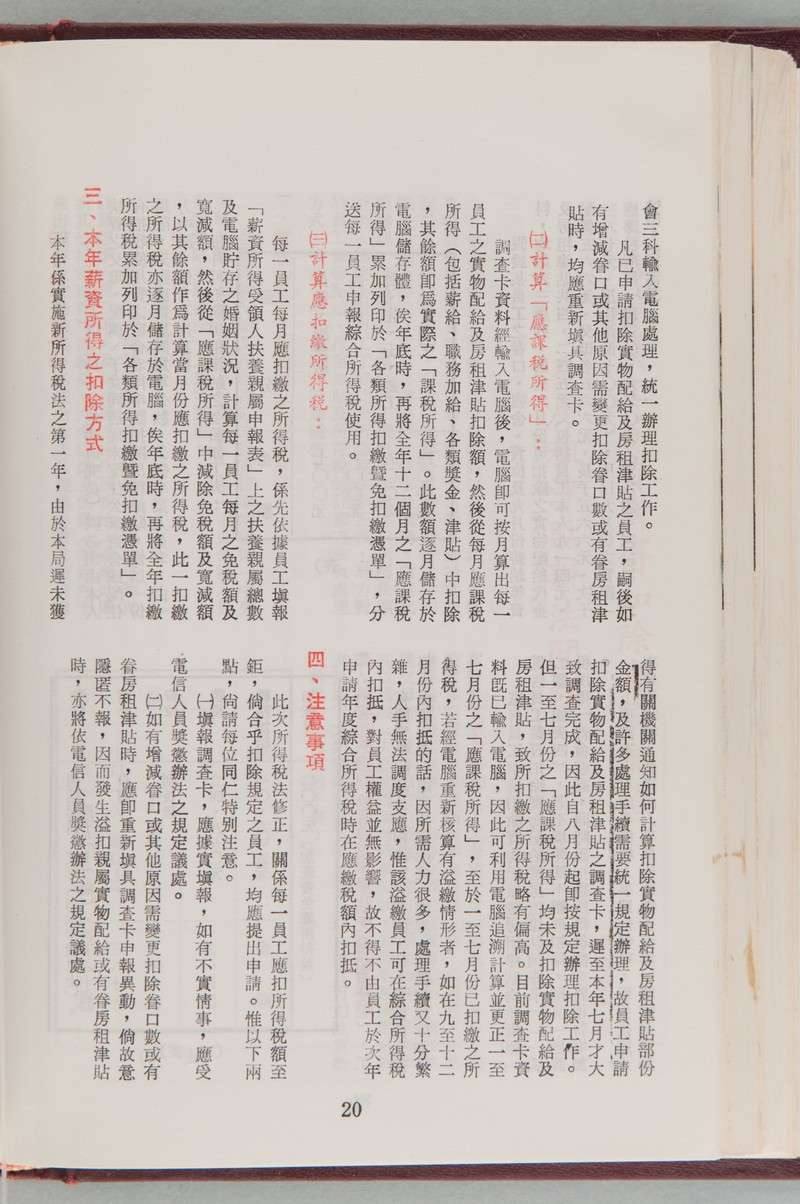 會三科輸入電腦處理，統一辦理扣除工作。
凡已申請扣除實物配給及房租津貼之員工，嗣後如
有增減眷口或其他原因需變更扣除眷口數或有眷房租津
貼時，均應重新塡具調查卡。
㈡計算「應課稅所得」：
調查卡資料經輸入電腦後，電腦卽可按月算出每一
員工之實物配給及房租津貼扣除額，然後從每月應課稅
所得（包括薪給、職務加給、各類獎金、津貼）中扣除
，其餘額卽爲實際之「課稅所得」。此數額逐月儲存於
電腦儲存體，俟年底時，再將全年十二個月之「應課稅
所得」累加列印於「各類所得扣繳曁免扣繳憑單」，分
送每一員工申報綜合所得稅使用。
㈢計算應扣繳所得稅：
每一員工每月應扣繳之所得稅，係先依據員工塡報
「薪資所得受領人扶養親屬申報表」上之扶養親屬總數
及電腦貯存之婚姻狀況，計算每一員工每月之免稅額及
寬減額，然後從「應課稅所得」中減除免稅額及寬減額
，以其餘額作爲計算當月份應扣繳之所得稅，此一扣繳
之所得稅亦逐月儲存於電腦，俟年底時，再將全年扣繳
所得稅累加列印於「各類所得扣繳曁免扣繳憑單」。
三、本年薪資所得之扣除方式
本年係實施新所得稅法之第一年，由於本局遲未獲
得有關機關通知如何計算扣除實物配給及房租津貼部份
金額，及許多處理手續需要統一規定辦理，故員工申請
扣除實物配給及房租津貼之調查卡，遲至本年七月才大
致調查完成，因此自八月份起卽按規定辦理扣除工作。
但一至七月份之「應課稅所得」均未及扣除實物配給及
房租津貼，致所扣繳之所得稅略有偏高。目前調查卡資
料旣已輸入電腦，因此可利用電腦追溯計算並更正一至
七月份之「應課稅所得」，至於一至七月份已扣繳之所
得稅，若經電腦重新核算有溢繳情形者，如在九至十二
月份內扣抵的話，因所需人力很多，處理手續又十分繁
雜，人手無法調度支應，惟該溢繳員工可在綜合所得稅
內扣抵，對員工權益並無影響，故不得不由員工於次年
申請年度綜合所得稅時在應繳稅額內扣抵。
四、注意事項
此次所得稅法修正，關係每一員工應扣所得稅額至
鉅，倘合乎扣除規定之員工，均應提出申請。惟以下兩
點，尙請每位同仁特別注意。
㈠塡報調查卡，應據實塡報，如有不實情事，應受
電信人員獎懲辦法之規定議處。
㈡如有增減眷口或其他原因需變更扣除眷口數或有
眷房租津貼時，應卽重新塡具調查卡申報異動，倘故意
隱匿不報，因而發生溢扣親屬實物配給或有眷房租津貼
時，亦將依電信人員獎懲辦法之規定議處。
20